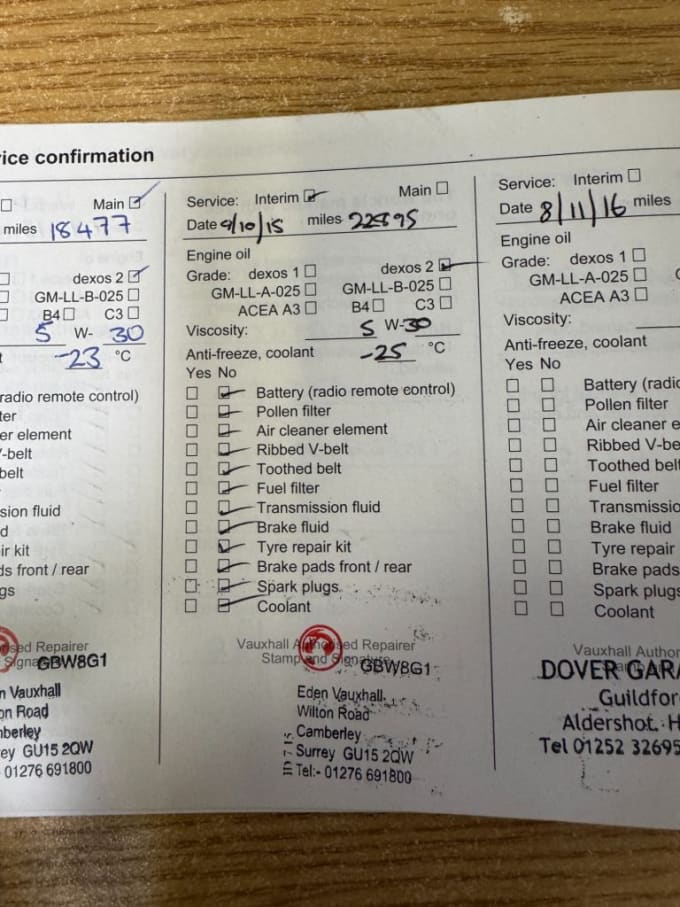 ice confirmation
Main
miles 18477
dexos 2
GM-LL-B-025
B4 C3
5 W- 30
-23 °C
radio remote control)
ter
er element
-belt
belt
sion fluid
d
ir kit
ds front / rear
gs
sed Repairer
Signa
GBW8G1
n Vauxhall
on Road
mberley
ey GU15 2QW
01276 691800
Service: Interim Main
Date 9/10/15 miles 22895
Engine oil
Grade: dexos 1 dexos 2
GM-LL-A-025 GM-LL-B-025
ACEA A3 B4 C3
Viscosity: 5 W-30
Anti-freeze, coolant -25 °C
Yes No
Battery (radio remote control)
Pollen filter
Air cleaner element
Ribbed V-belt
Toothed belt
Fuel filter
Transmission fluid
Brake fluid
Tyre repair kit
Brake pads front / rear
Spark plugs
Coolant
Vauxhall Authorised Repairer
Stamp and Signature
GBW8G1
Eden Vauxhall
Wilton Road
Camberley
Surrey GU15 2QW
Tel:- 01276 691800
Service: Interim
Date 8/11/16 miles
Engine oil
Grade: dexos 1
GM-LL-A-025
ACEA A3
Viscosity:
Anti-freeze, coolant
Yes No
Battery (radio
Pollen filter
Air cleaner e
Ribbed V-be
Toothed belt
Fuel filter
Transmissio
Brake fluid
Tyre repair
Brake pads
Spark plugs
Coolant
Vauxhall Author
DOVER GARA
Guildfor
Aldershot. H
Tel 01252 32695